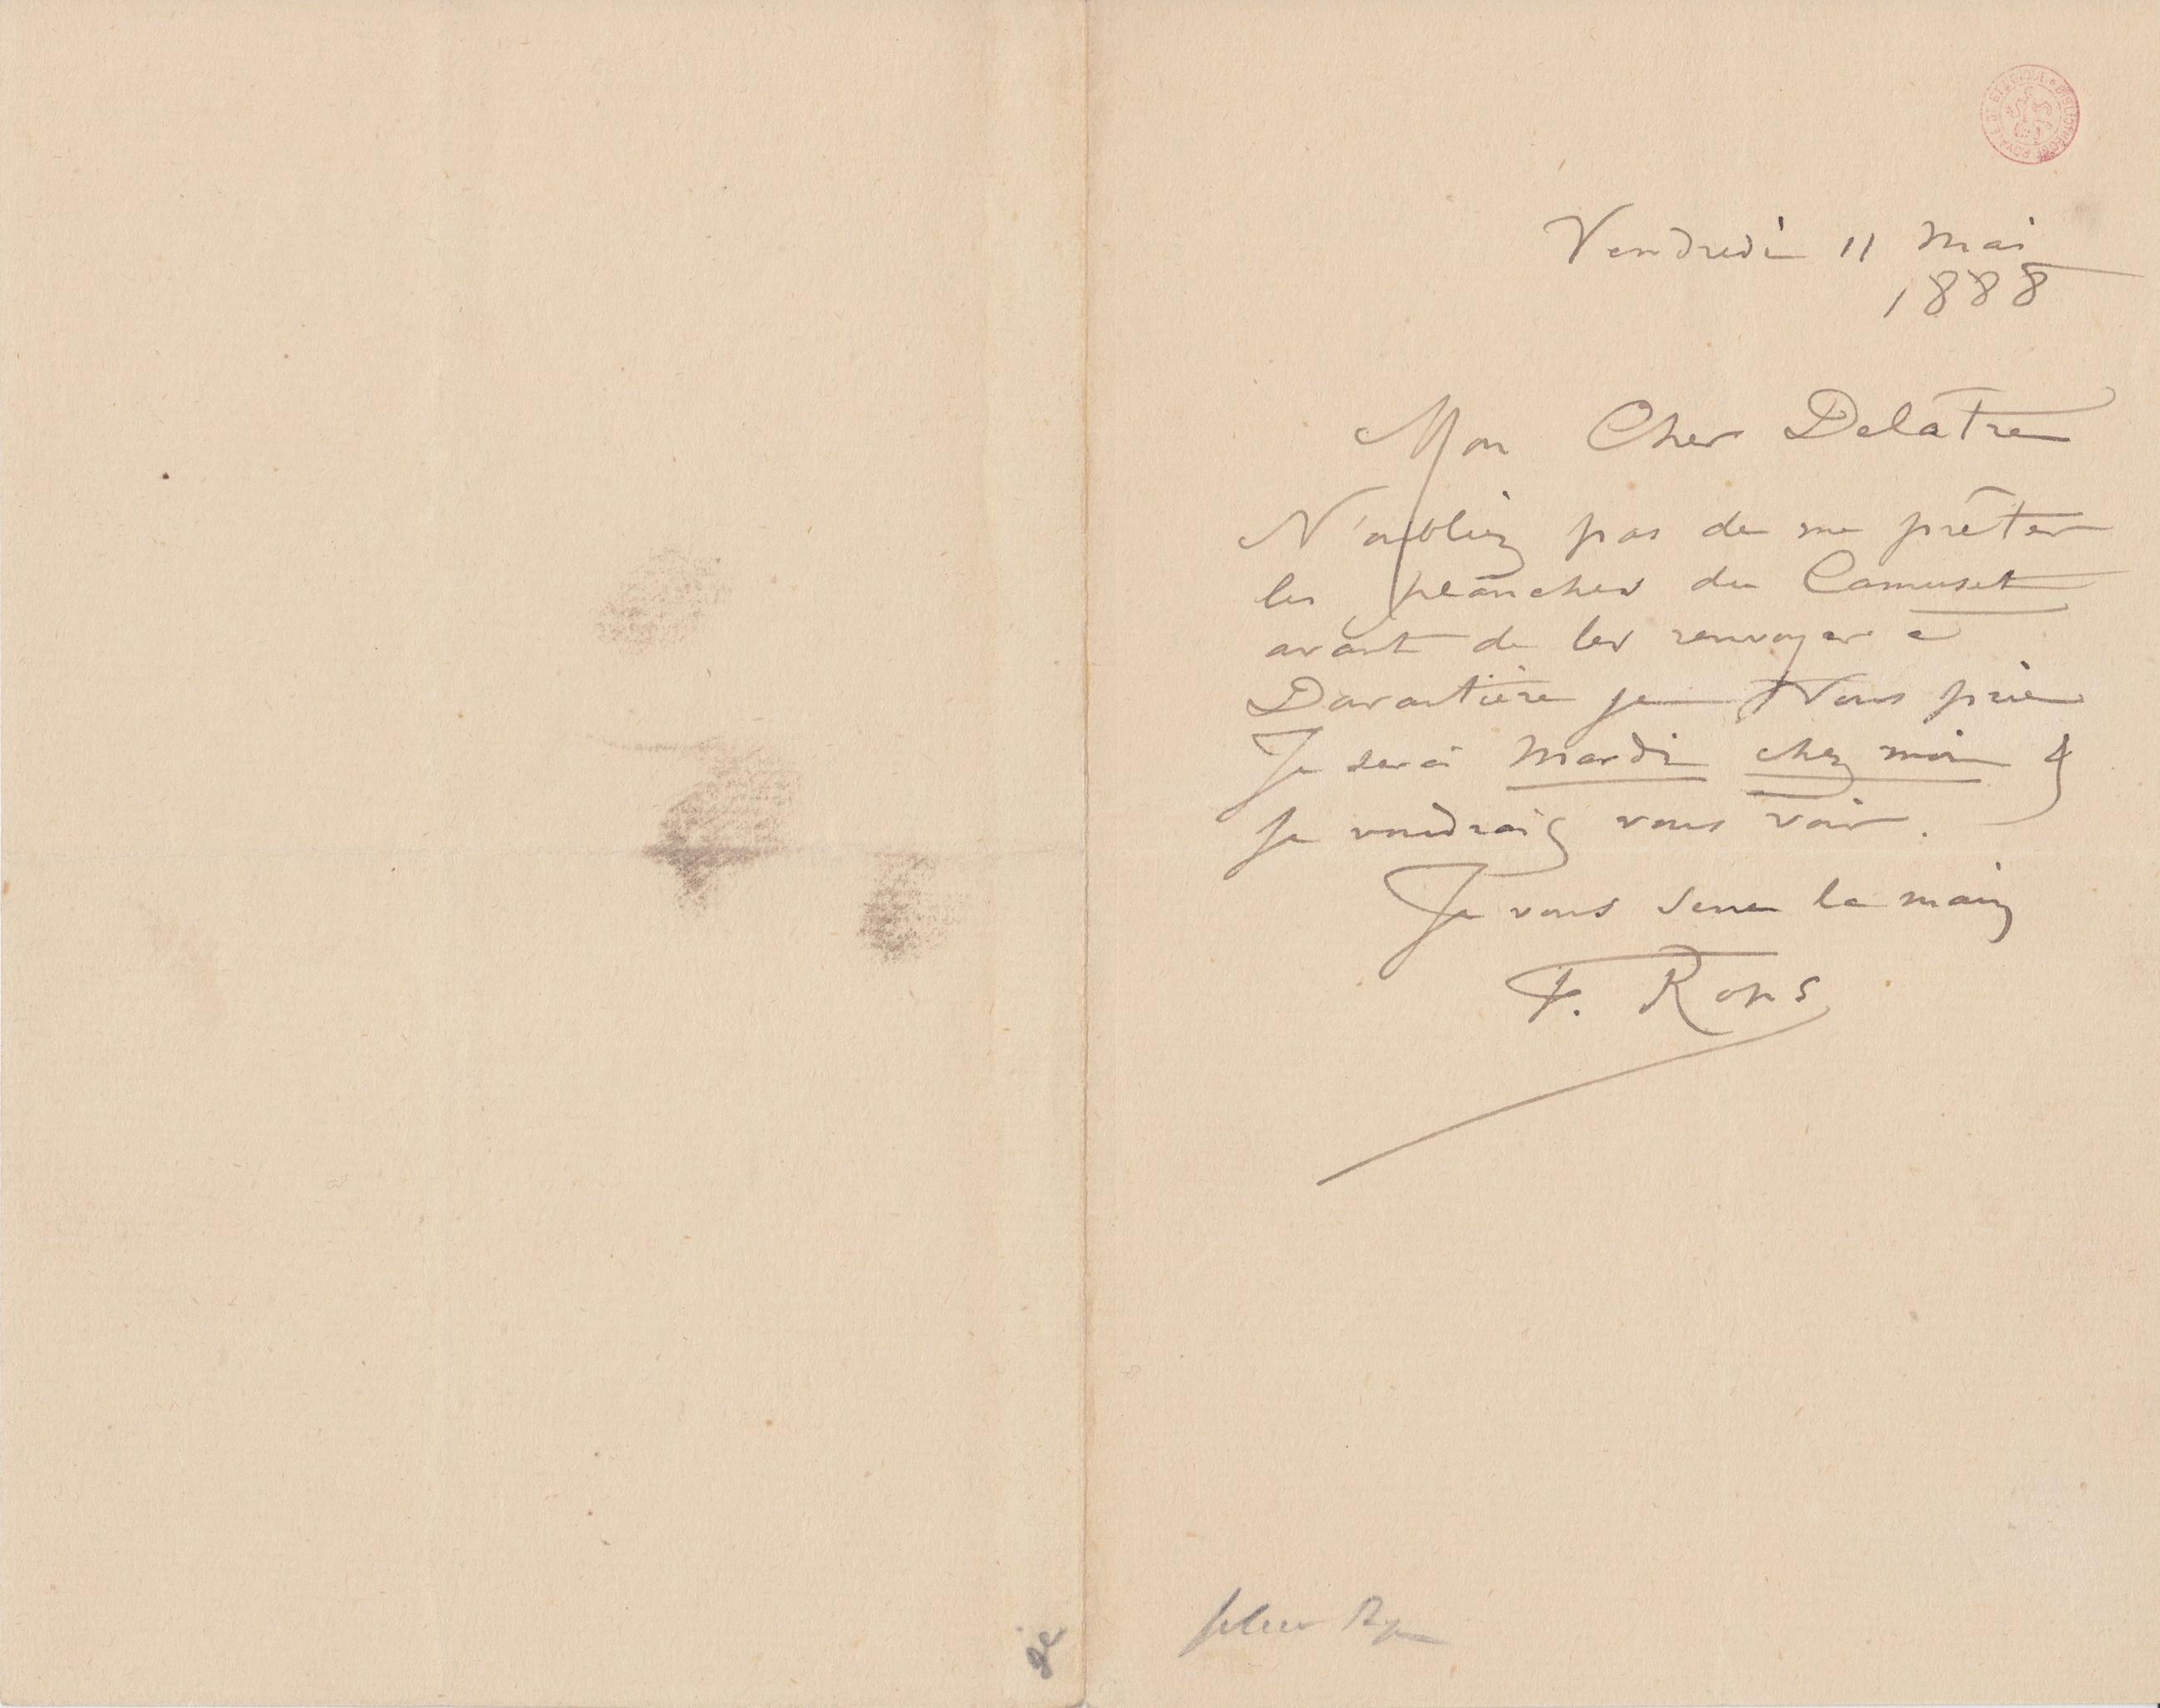 BIBLIOTHÈQUE ROYALE DE BELGIQUE
Vendredi 11 Mai
1888
Mon Cher Delâtre
N'oubliez pas de me prêter
les planches du Camuset
avant de les renvoyer à
Darantière je Vous prie
Je serai Mardi chez moi &
je voudrais vous voir.
Je vous serre la main
F. Rops